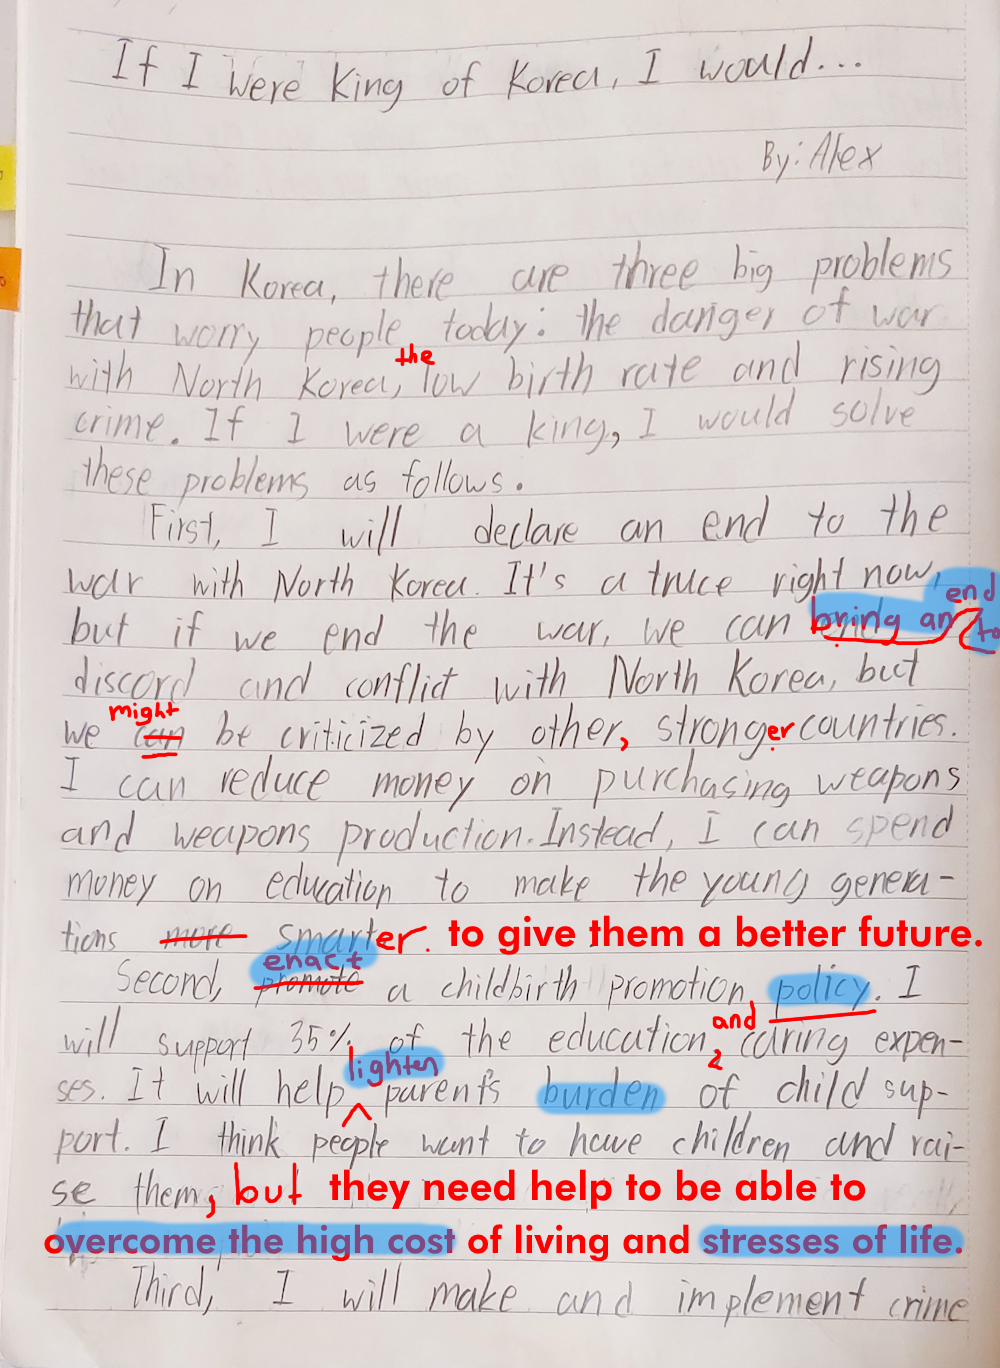 If I were king of Korea, I would...
By: Alex
In Korea, there are three big problems
that worry people today: the danger of war
with North Korea, the low birth rate and rising
crime. If I were a king, I would solve
these problems as follows.
First, I will declare an end to the
war with North Korea. It's a truce right now,
but if we end the war, we can bring an end to
discord and conflict with North Korea, but
we can might be criticized by other, stronger countries.
I can reduce money on purchasing weapons
and weapons production. Instead, I can spend
money on education to make the young genera-
tions more smarter. to give them a better future.
Second, promote enact a childbirth promotion policy. I
will support 35% of the education, and caring expen-
ses. It will help lighten parent's burden of child sup-
port. I think people want to have children and rai-
se them, but they need help to be able to
overcome the high cost of living and stresses of life.
Third, I will make and implement crime